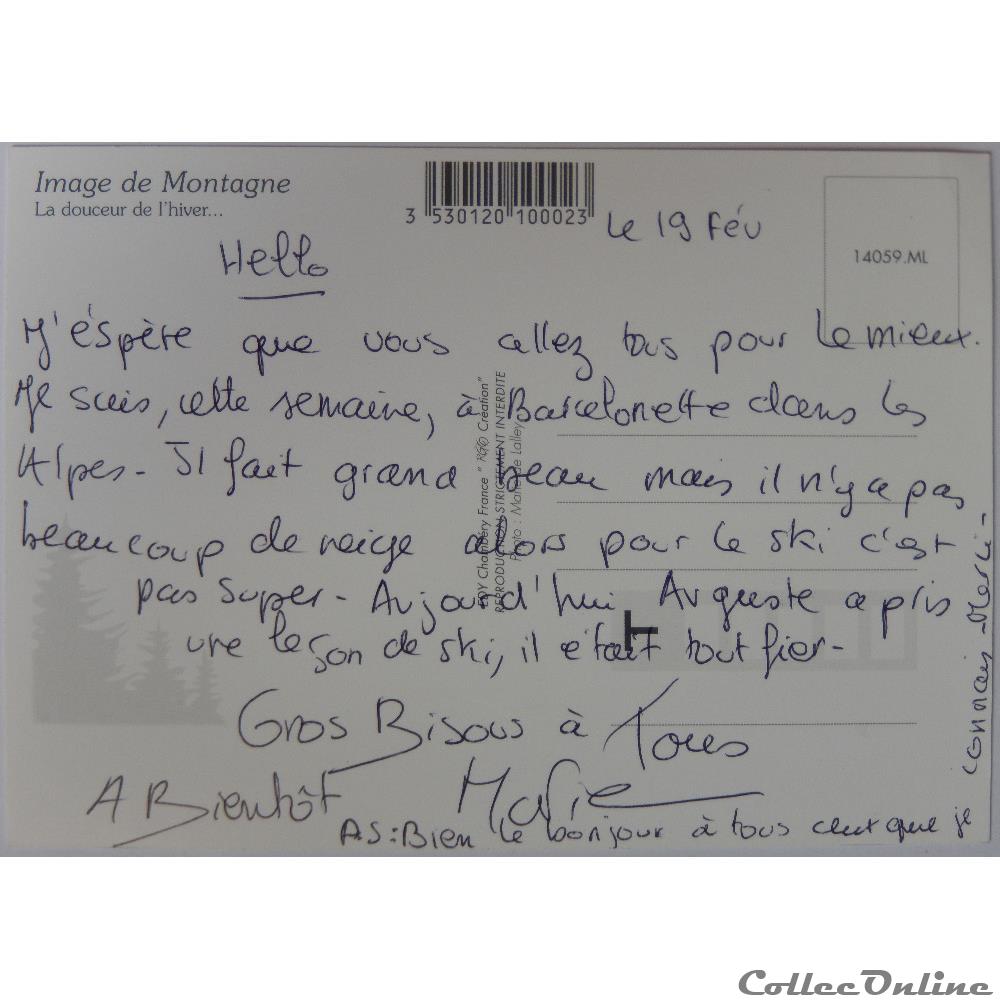 Image de Montagne
La douceur de l'hiver...
3 530120 100023
14059.ML
Le 19 Fév
Hello
J'éspère que vous allez tous pour le mieux.
Je suis, cette semaine, à Barcelonette dans les
Alpes - Il fait grand beau mais il n'y a pas
beaucoup de neige alors pour le ski c'est
pas super - Aujourd'hui Auguste a pris
une leçon de ski, il était tout fier -
Gros Bisous à Tous
A Bientôt
Marie
P.S : Bien le bonjour à tous ceux que je
connais - Merci -
EDY Chambéry France " Création"
REPRODUCTION STRICTEMENT INTERDITE
Photo : Marie de Lalley
CollecOnline